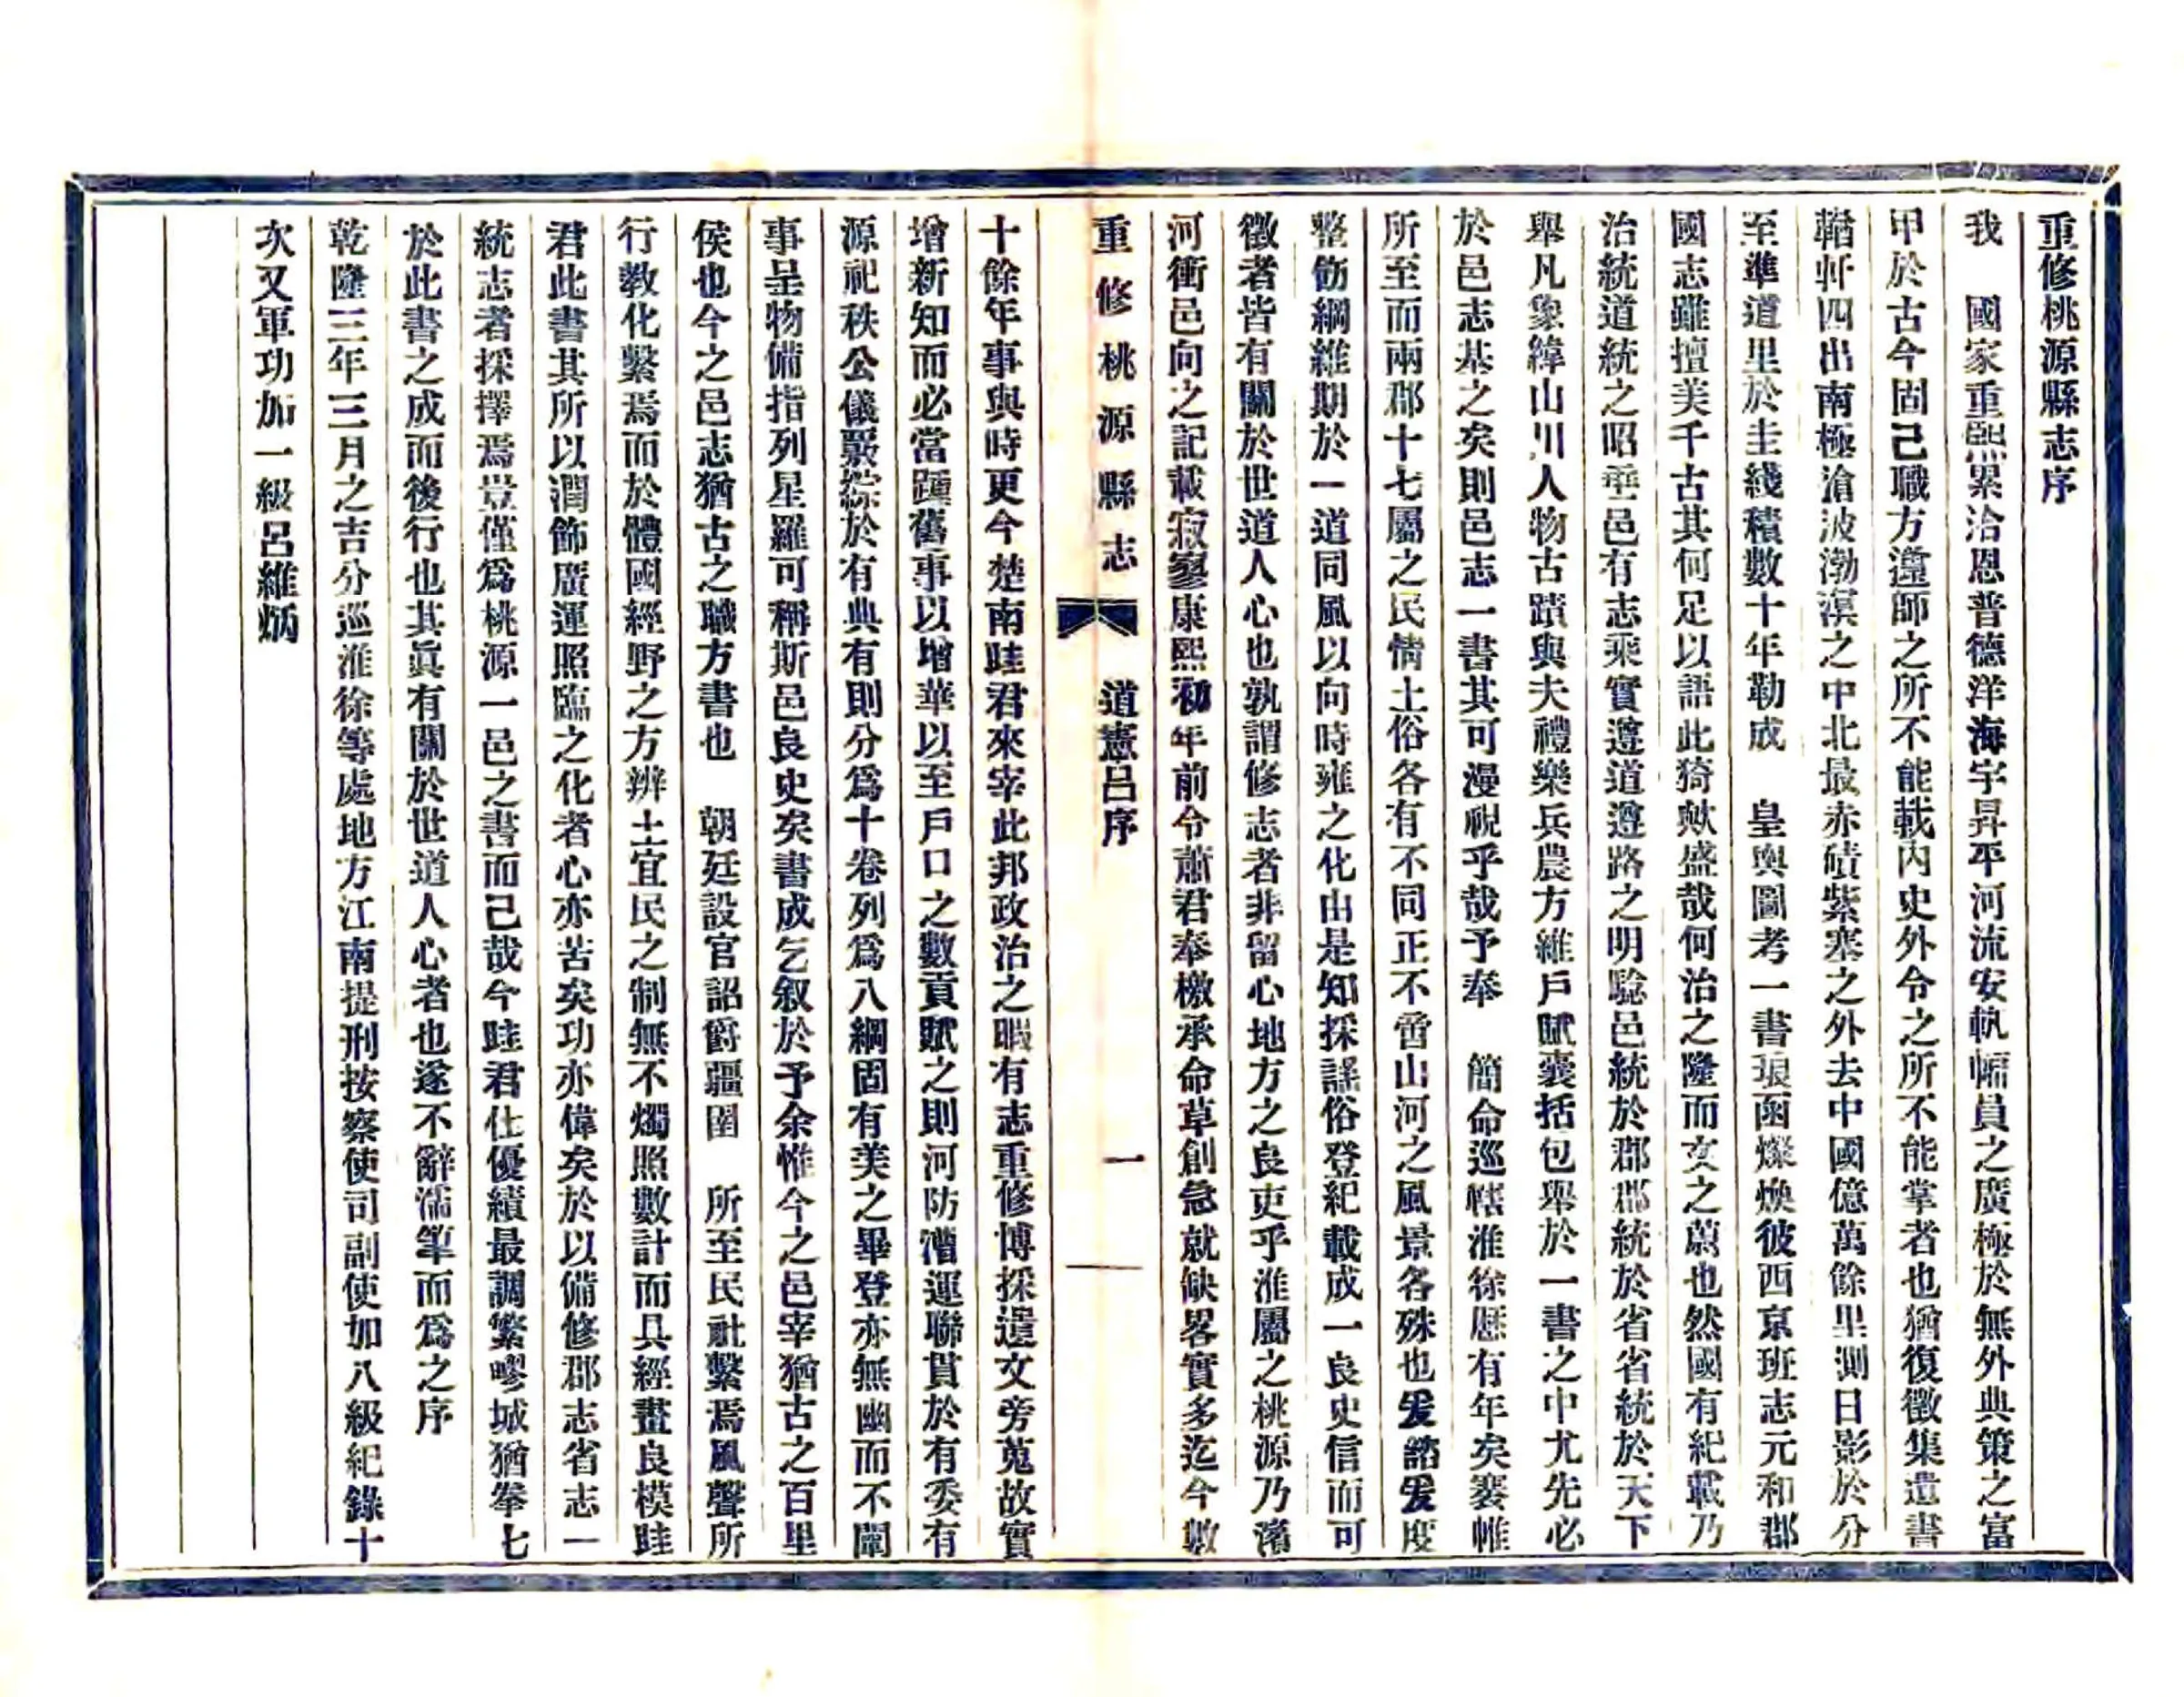 重修桃源縣志序
我　國家重熙累洽恩普德洋海宇昇平河流安軌幅員之廣極於無外典策之富
甲於古今固己職方邅師之所不能載內史外令之所不能掌者也猶復徵集遺書
軺軒四出南極滄波渤溟之中北最赤磧紫塞之外去中國億萬餘里測日影於分
至準道里於圭綫積數十年勒成　皇輿圖考一書琅函燦煥彼西京班志元和郡
國志雖擅美千古其何足以語此猗歟盛哉何治之隆而文之蔚也然國有紀載乃
治統道統之昭垂邑有志乘實遵道遵路之明驗邑統於郡郡統於省省統於天下
舉凡象緯山川人物古蹟與夫禮樂兵農方維戶賦囊括包舉於一書之中尤先必
於邑志基之矣則邑志一書其可漫視乎哉予奉　簡命巡轄淮徐歷有年矣褰帷
所至而兩郡十七屬之民情土俗各有不同正不啻山河之風景各殊也爰諮爰度
整飭綱維期於一道同風以向時雍之化由是知採謠俗登紀載成一良史信而可
徵者皆有關於世道人心也孰謂修志者非留心地方之良吏乎淮屬之桃源乃濱
河衝邑向之記載寂寥康熙初年前令蕭君奉檄承命草創急就缺畧實多迄今數
重修桃源縣志　道憲呂序　一
十餘年事與時更今楚南眭君來宰此邦政治之暇有志重修博採遺文旁蒐故實
增新知而必當踵舊事以增華以至戶口之數貢賦之則河防漕運聯貫於有委有
源祀秩公儀嚴綜於有典有則分爲十卷列爲八綱固有美之畢登亦無幽而不闡
事呈物備指列星羅可稱斯邑良史矣書成乞叙於予余惟今之邑宰猶古之百里
侯也今之邑志猶古之職方書也　朝廷設官詔爵疆圉　所至民社繫焉風聲所
行教化繫焉而於體國經野之方辨土宜民之制無不燭照數計而具經畫良模眭
君此書其所以潤飾廣運照臨之化者心亦苦矣功亦偉矣於以備修郡志省志一
統志者採擇焉豈僅爲桃源一邑之書而己哉今眭君仕優績最調繁嘐城猶拳七
於此書之成而後行也其眞有關於世道人心者也遂不辭濡筆而爲之序
乾隆三年三月之吉分巡淮徐等處地方江南提刑按察使司副使加八級紀錄十
次又軍功加一級呂維炳